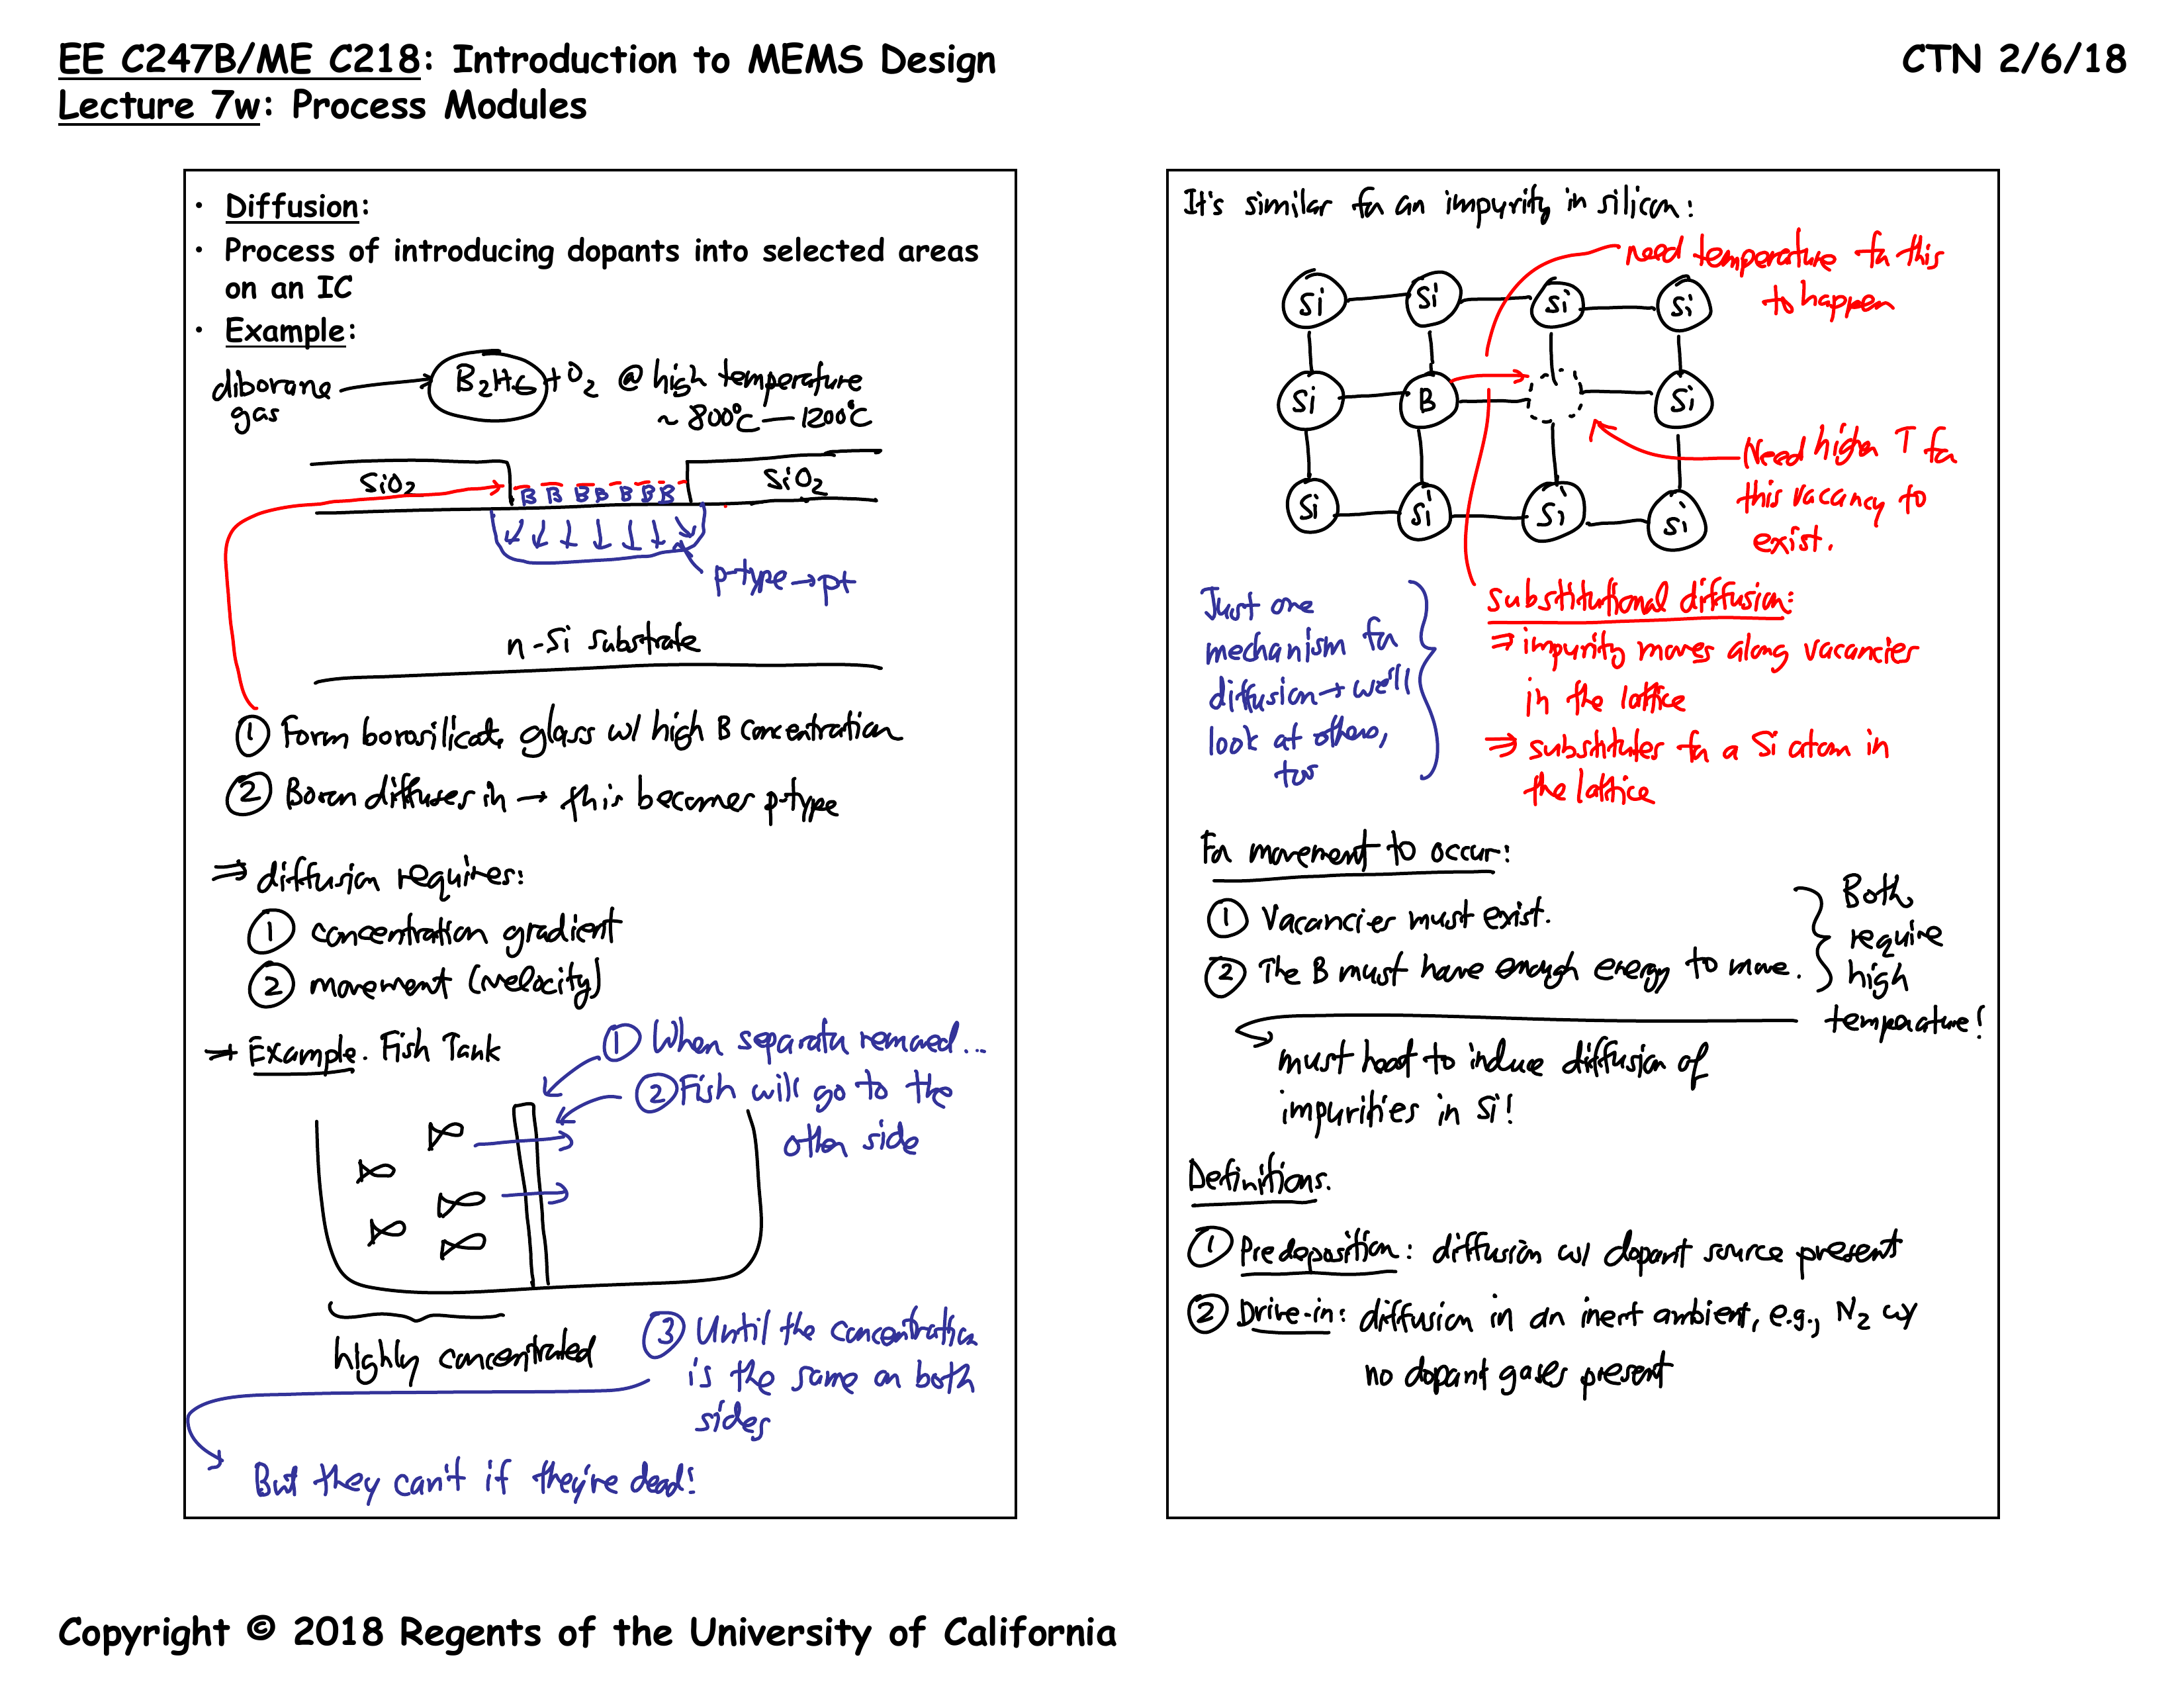 EE C247B/ME C218: Introduction to MEMS Design
CTN 2/6/18
Lecture 7w: Process Modules
• Diffusion:
• Process of introducing dopants into selected areas
on an IC
• Example:
diborane
gas
B₂H₆ + O₂ @ high temperature
~ 800°C — 1200°C
SiO₂
B B B B B B B
SiO₂
p-type → p+
n-Si substrate
① Form borosilicate glass w/ high B concentration
② Boron diffuses in → this becomes p-type
⇒ diffusion requires:
① concentration gradient
② movement (velocity)
→ Example. Fish Tank
① When separator removed...
② Fish will go to the
other side
highly concentrated
③ Until the concentration
is the same on both
sides
But they can't if they're dead!
It's similar for an impurity in silicon:
need temperature for this
to happen
Si Si Si Si
Si B Si
Si Si Si Si
Need higher T for
this vacancy to
exist.
Just one
mechanism for
diffusion → we'll
look at others,
too
Substitutional diffusion:
⇒ impurity moves along vacancies
in the lattice
⇒ substitutes for a Si atom in
the lattice
For movement to occur:
① Vacancies must exist.
② The B must have enough energy to move.
Both
require
high
temperature!
must heat to induce diffusion of
impurities in Si!
Definitions.
① Predeposition: diffusion w/ dopant source present
② Drive-in: diffusion in an inert ambient, e.g., N₂ w/
no dopant gases present
Copyright © 2018 Regents of the University of California